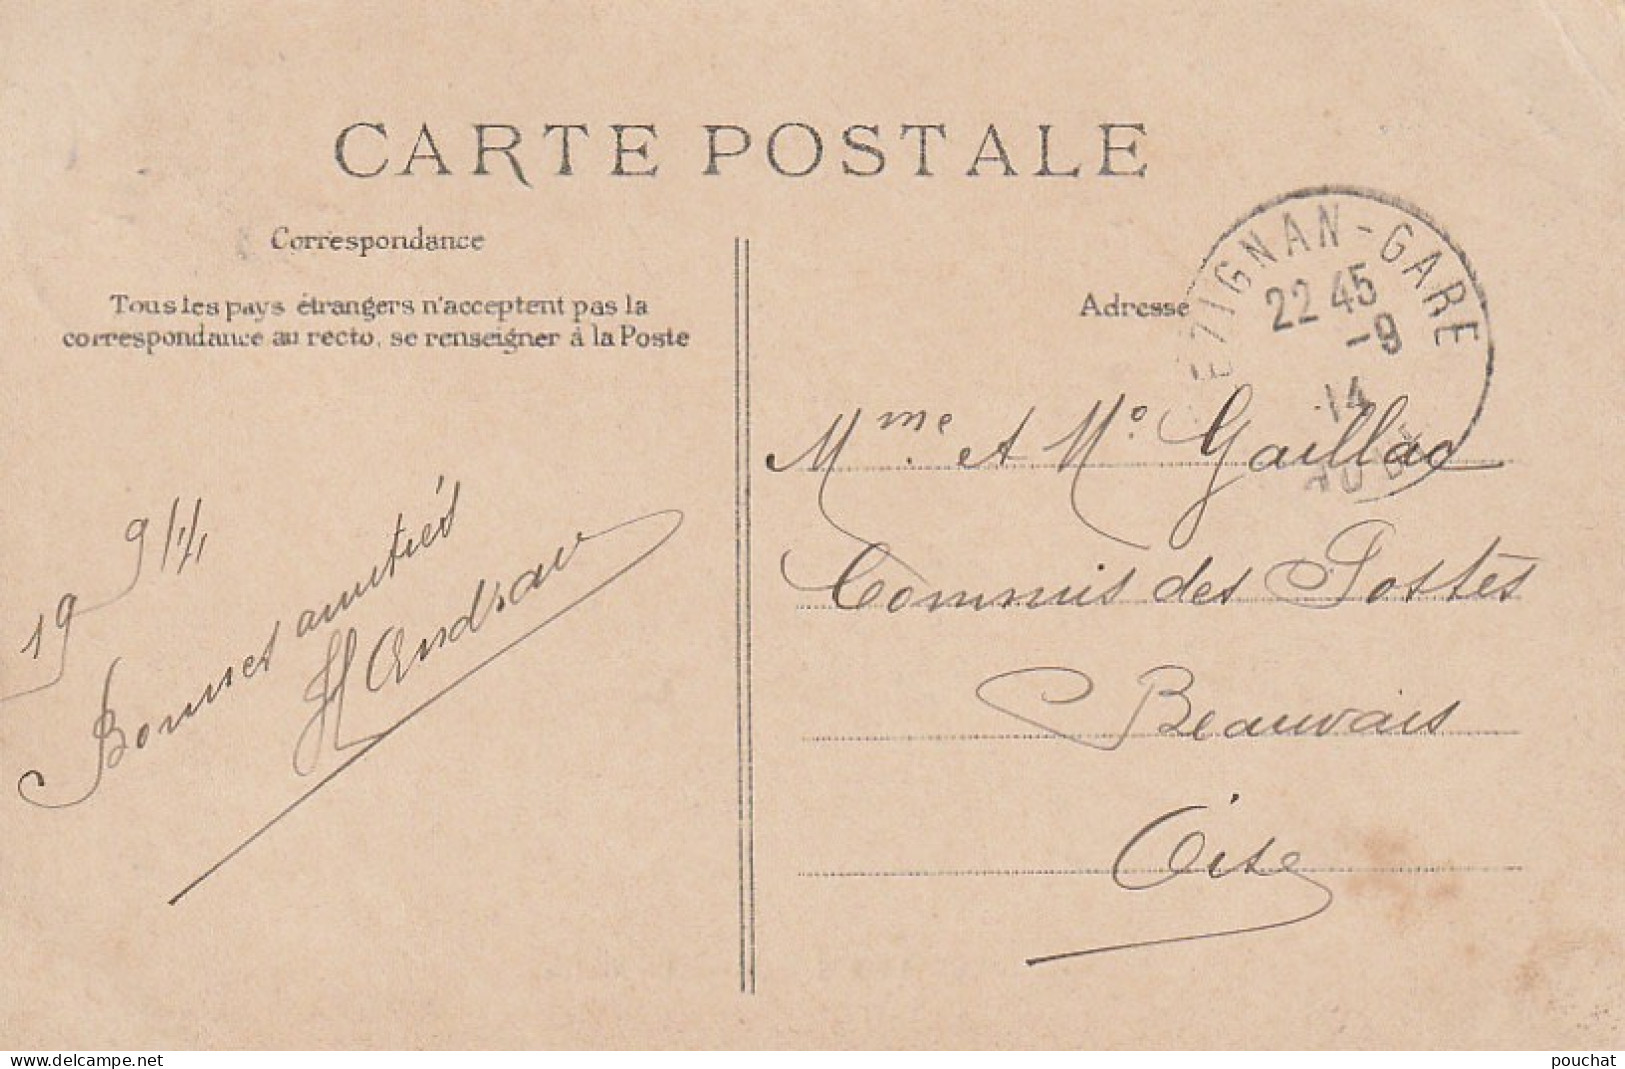 CARTE POSTALE
Correspondance
Tous les pays étrangers n'acceptent pas la
correspondance au recto, se renseigner à la Poste
19 9/14
Bonnes amitiés
Andrau
Adresse
EZIGNAN-GARE
22 45
-9
14
AUDE
Mme. et Mo. Gaillac
Commis des Postes
Beauvais
Oise
www.delcampe.net
pouchat